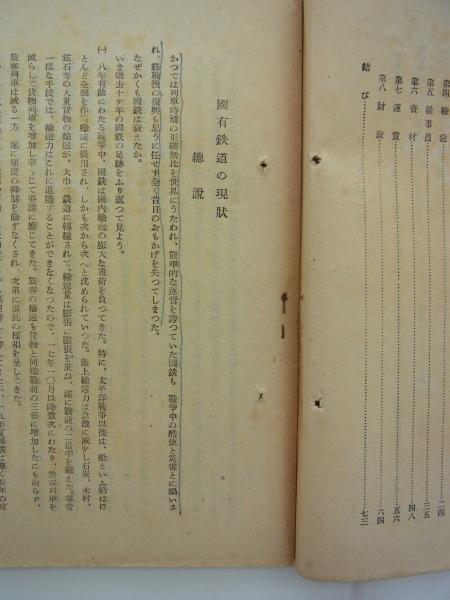 第四 輸送……………二四
第五 従事員……………三五
第六 資材……………四八
第七 運賃……………五六
第八 財政……………六四
結び……………七三
國有鉄道の現狀
總說
かつては列車時刻の正確無比を世界にうたわれ、能率的な運営を誇つていた國鉄も 戰爭中の酷使と災害とに禍いさ
れ、終戰後の復興も思うに任せず全く昔日のおもかげを失つてしまつた。
なぜかくも國鉄は衰えたか。
いま過去十ヶ年の國鉄の足跡をふり返つて見よう。
㈠ 八年有餘にわたる戰爭中、國鉄は國內輸送の厖大な重荷を負つてきた。特に、太平洋戰爭以後は、船といふ船はほ
とんど全部を作戰輸送に徴用され、しかも次から次へと沈められていつた。海上輸送力は急激に減少し石炭、木材、
鉱石等の大量貨物の輸送が、大巾に鉄道に轉嫁されて、輸送量は膨張に膨張を重ね、遂に戰前の二倍半を超えた。尋常
一樣な手段では、輸送力はこれに追隨することができなくなつたので、一七年一〇月以降数次にわたり、旅客列車を
減らして貨物列車を增加し辛うじて要請に應じてきた。旅客の輸送も貨物と同樣戰前の三倍に增加したにも拘らず、
旅客列車は減る一方 遂に强度の抑制を餘ぎなくされ、次第に混乱の樣相を呈してきた。